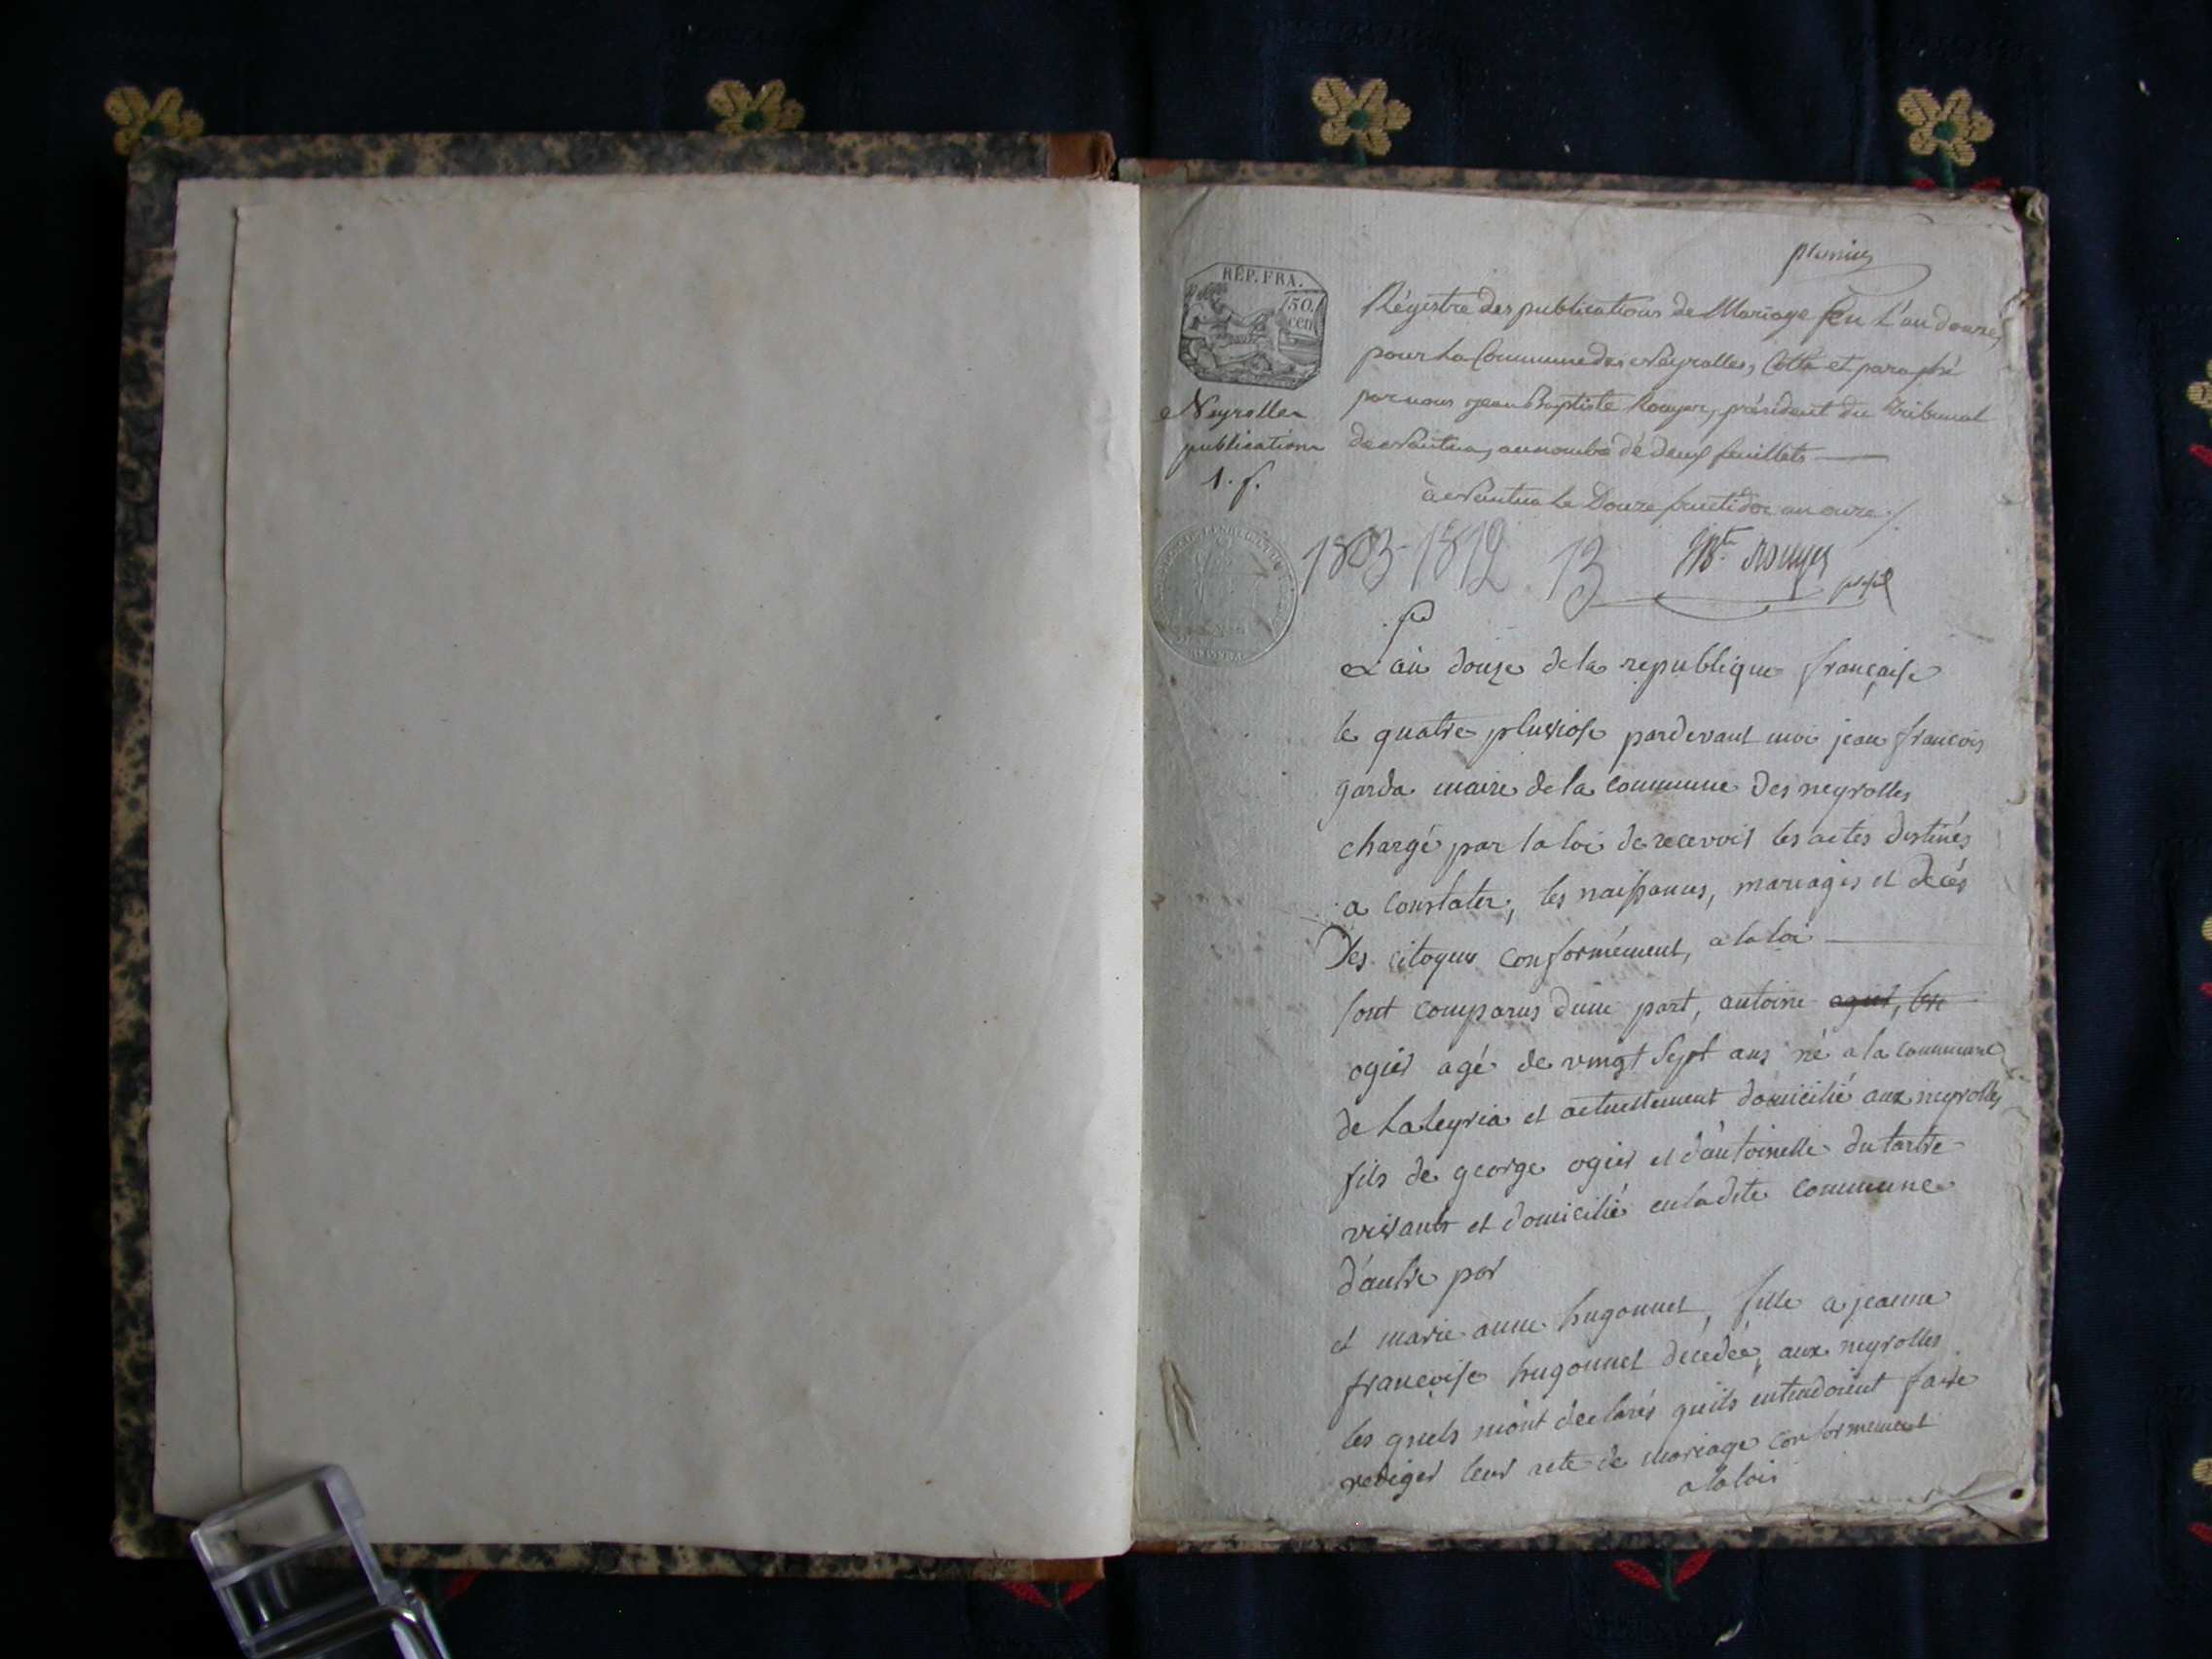 premier
RÉP. FRA.
50.
cen
Régistre des publications de Mariage pen L'an douze,
pour La Commune des Neyrolles, Cotté et paraphé
par nous jean Baptiste Rouyer, président du tribunal
de Nantua, au nombre de deux feuillets —
Neyrolles
publications
1. f.
à Nantua Le Douze fructidor an onze /.
1803-1812 13
JBte. rouyer
L'an douze de la republique françaife
le quatre pluviofe pardevant moi jean françois
garda maire de la commune des neyrolles
chargé par la loi de recevoir les actes destinés
a constater, les naissances, mariages et décés
Des citoyens conformément, a la loi —
sont comparus dune part, antoine
ogier agé de vingt sept ans né a la commune
de Laleyria et actuellement domicilié aux neyrolles
fils de george ogier et d'antoinette dutartre
vivants et domicilié en ladite commune
d'autre par
et marie anne hugonnet, fille a jeanne
françoise hugonnet décédée, aux neyrolles
les quels m'ont declarés quils entendoient faire
rediger leur acte de mariage conformement
a la loi